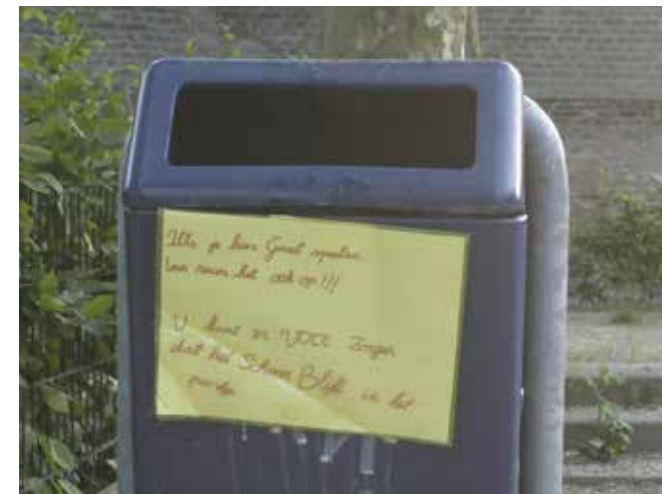 Als je hier Goed
ruim het ook op!!!
U kunt er VOOR Zorgen
dat het Schoon Blijft in het